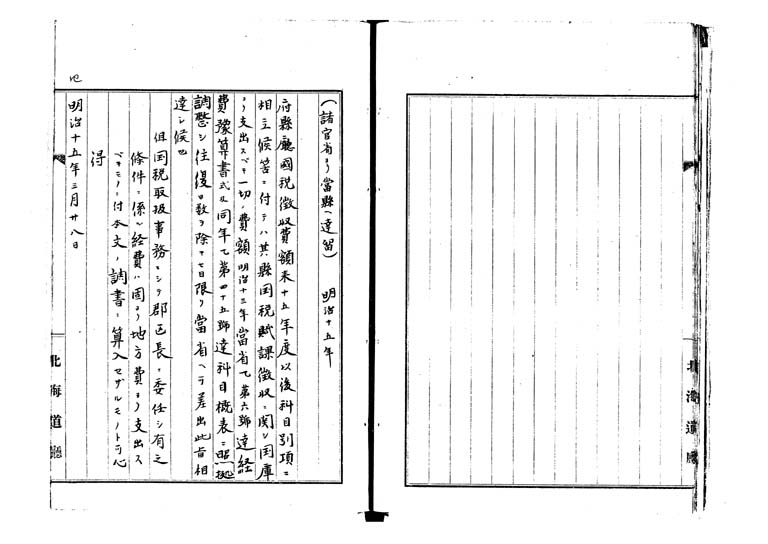 北海道廳
(諸官省ヨリ當縣ヘ達留) 明治十五年
府縣廳國税徴収費額来十五年度以後科目別項ニ
相立候筈ニ付テハ其縣国税賦課徴収ニ関シ国庫
ヨリ支出スベキ一切ノ費額明治十三年當省乙第六号達経
費豫算書式及同年乙第四十五号達科目概表ニ照拠
調整シ往復日数ヲ除キ七日限リ當省ヘ可差出此旨相
達シ候也
但国税取扱事務ニシテ郡区長ニ委任シ有之
條件ニ係ル経費ハ固ヨリ地方費ヨリ支出ス
ベキモノニ付本文ノ調書ニ算入セザルモノト可心
得
明治十五年三月廿八日
北海道廳